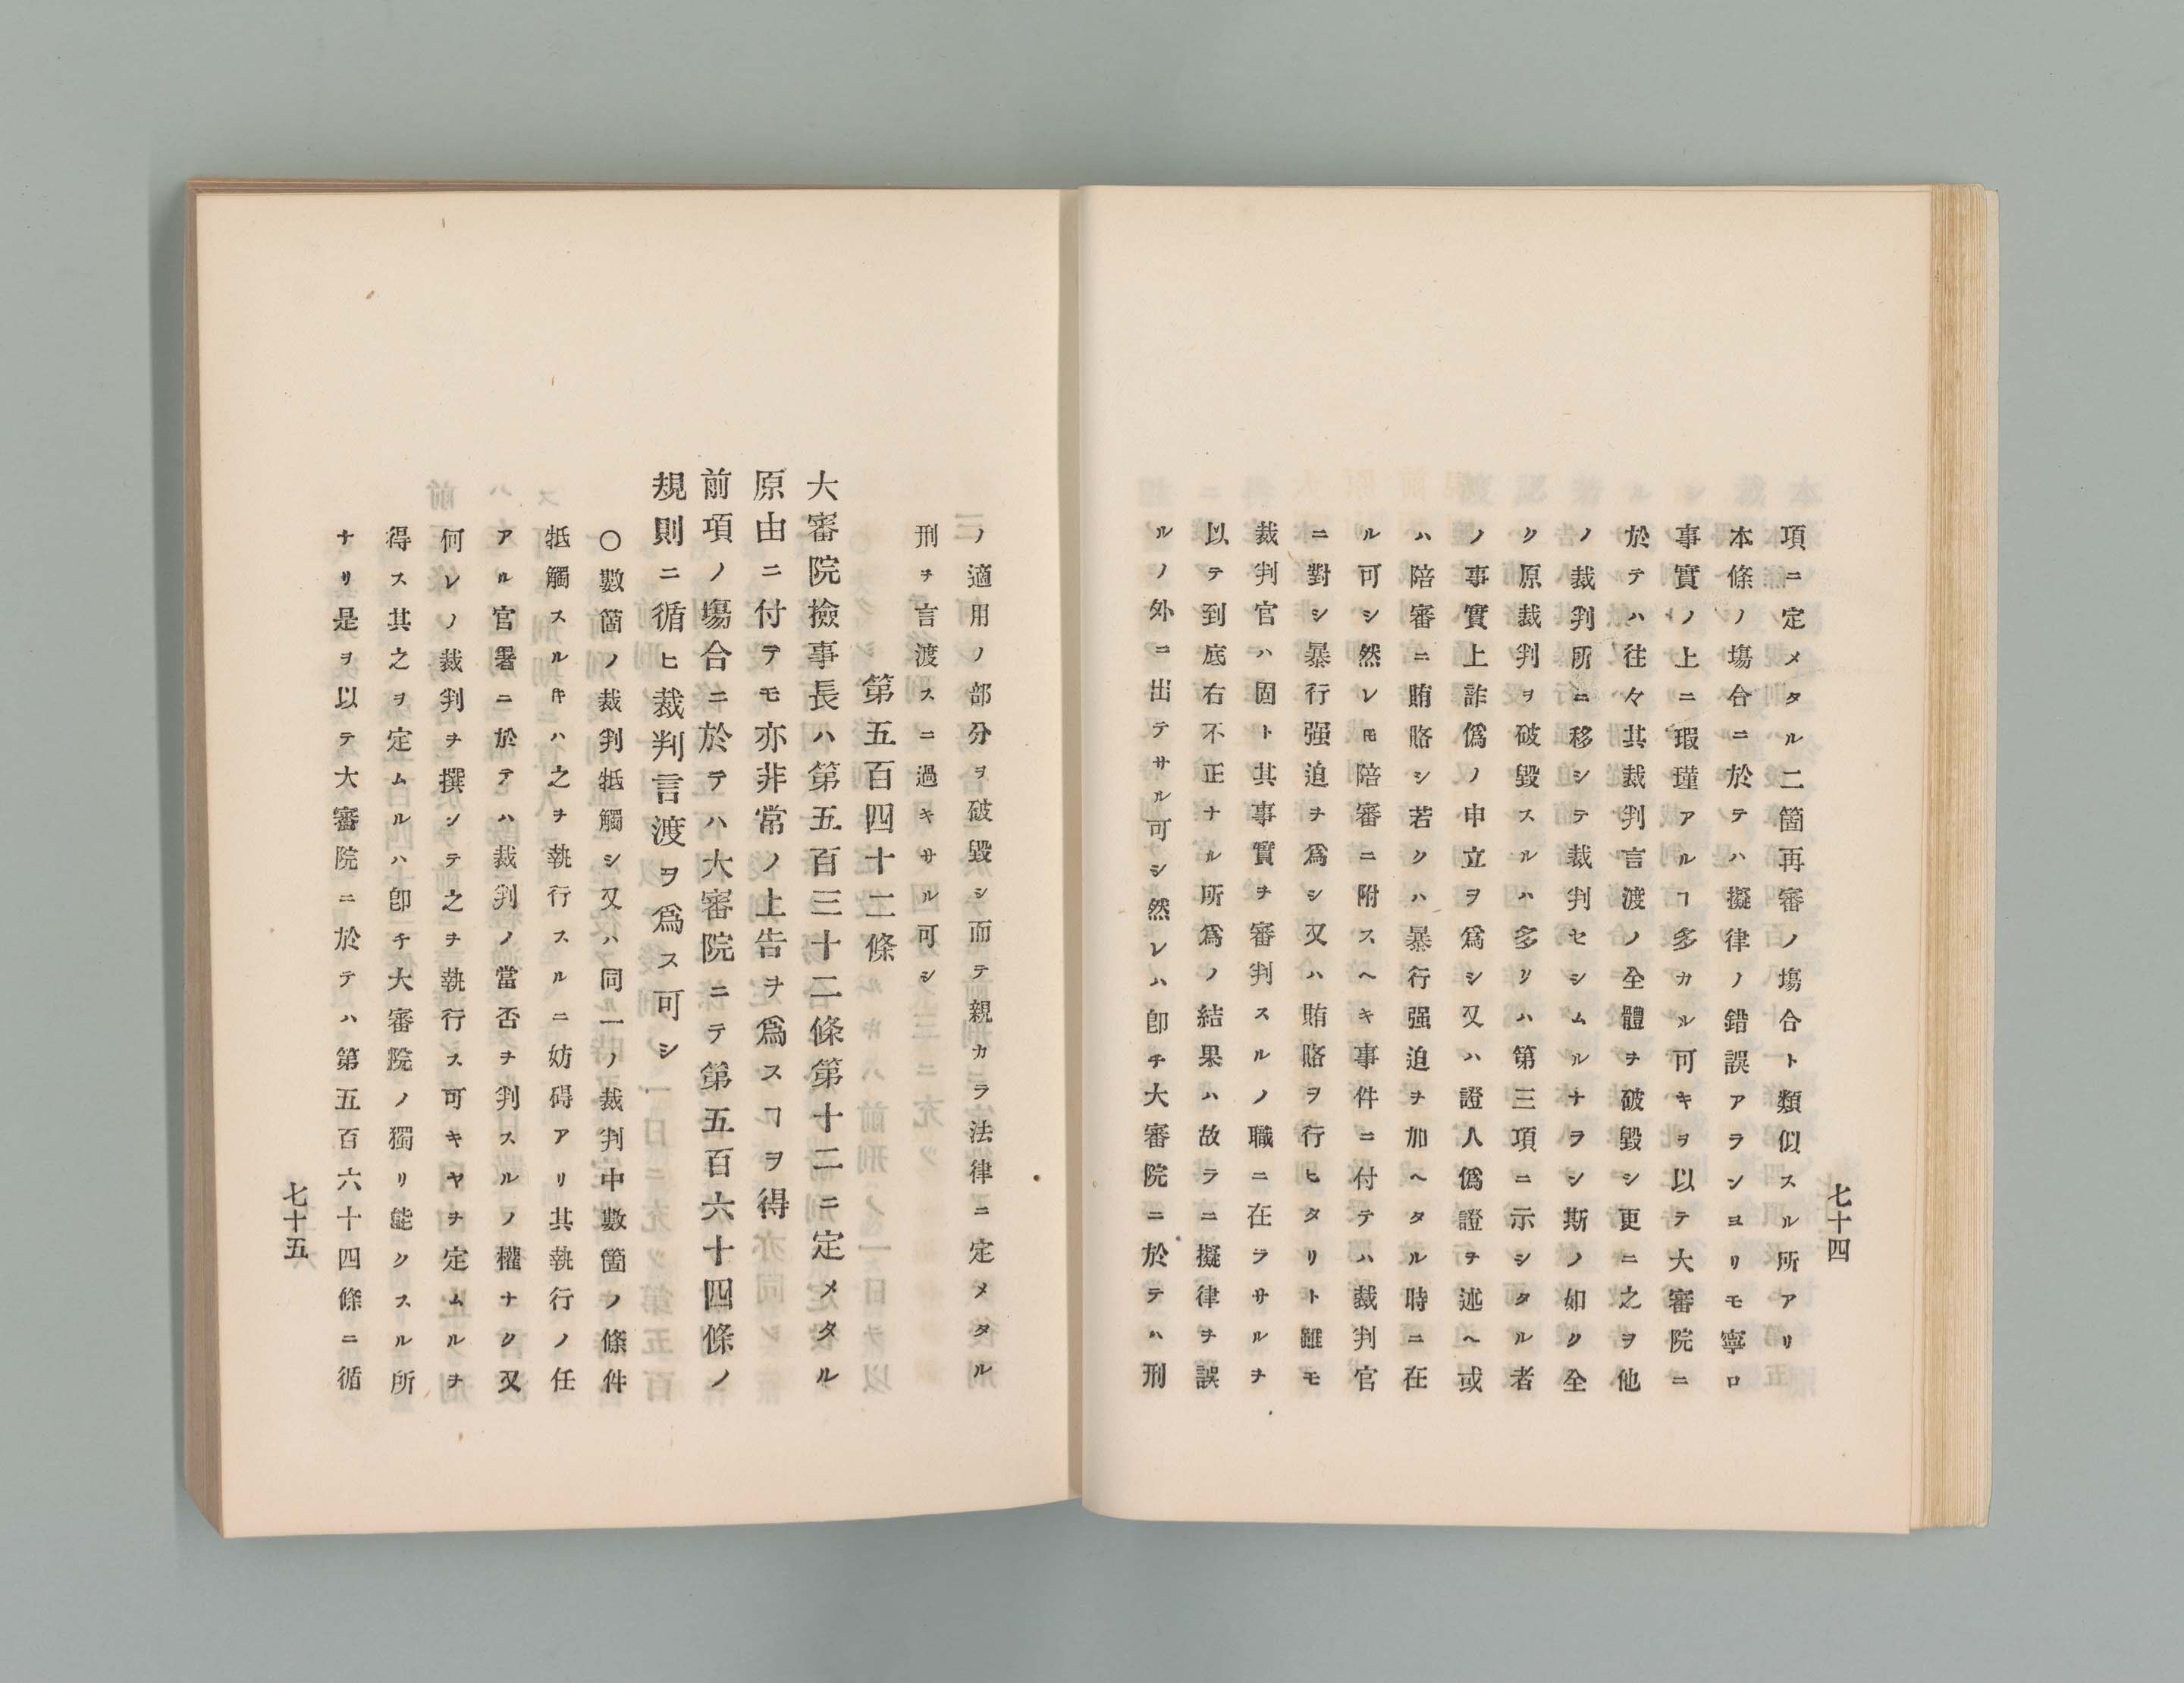 項ニ定メタル二箇再審ノ塲合ト類似スル所アリ
本條ノ塲合ニ於テハ擬律ノ錯誤アランヨリモ寧ロ
事實ノ上ニ瑕瑾アルヿ多カル可キヲ以テ大審院ニ
於テハ往々其裁判言渡ノ全體ヲ破毀シ更ニ之ヲ他
ノ裁判所ニ移シテ裁判セシムルナラン斯ノ如ク全
ク原裁判ヲ破毀スルハ多リハ第三項ニ示シタル者
ノ事實上詐僞ノ申立ヲ爲シ又ハ證人僞證ヲ述ヘ或
ハ陪審ニ賄賂シ若クハ暴行强迫ヲ加ヘタル時ニ在
ル可シ然レ𪜈陪審ニ附スヘキ事件ニ付テハ裁判官
ニ對シ暴行强迫ヲ爲シ又ハ賄賂ヲ行ヒタリト雖モ
裁判官ハ固ト其事實ヲ審判スルノ職ニ在ラサルヲ
以テ到底右不正ナル所爲ノ結果ハ故ラニ擬律ヲ誤
ルノ外ニ出テサル可シ然レハ卽チ大審院ニ於テハ刑
七十四
ノ適用ノ部分ヲ破毀シ而テ親カラ法律ニ定メタル
刑ヲ言渡スニ過キサル可シ
第五百四十二條
大審院撿事長ハ第五百三十二條第十二ニ定メタル
原由ニ付テモ亦非常ノ上告ヲ爲スヿヲ得
前項ノ塲合ニ於テハ大審院ニテ第五百六十四條ノ
規則ニ循ヒ裁判言渡ヲ爲ス可シ
○數箇ノ裁判牴觸シ又ハ同一ノ裁判中數箇ノ條件
牴觸スル𪜈ハ之ヲ執行スルニ妨碍アリ其執行ノ任
アル官署ニ於テハ裁判ノ當否ヲ判スルノ權ナク又
何レノ裁判ヲ撰ンテ之ヲ執行ス可キヤヲ定ムルヲ
得ス其之ヲ定ムルハ卽チ大審院ノ獨リ能クスル所
ナリ是ヲ以テ大審院ニ於テハ第五百六十四條ニ循
七十五